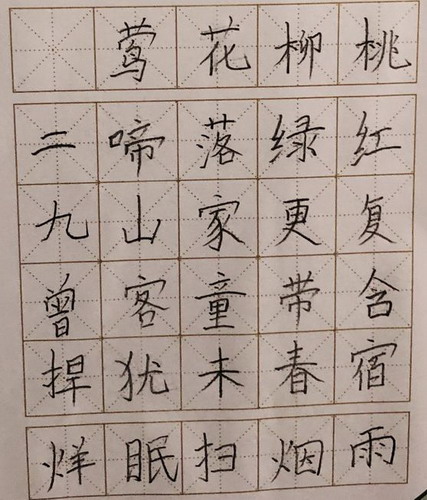 桃红复含宿雨
柳绿更带春烟
花落家童未扫
莺啼山客犹眠
二九曾捍烊